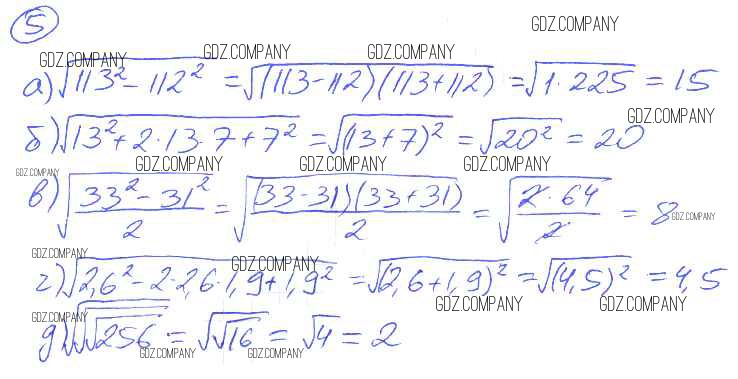 5
GDZ.COMPANY
GDZ.COMPANY GDZ.COMPANY GDZ.COMPANY
а) √(113² - 112²) = √((113-112)(113+112)) = √(1·225) = 15
GDZ.COMPANY
б) √(13² + 2·13·7 + 7²) = √((13+7)²) = √(20²) = 20
GDZ.COMPANY GDZ.COMPANY GDZ.COMPANY GDZ.COMPANY
в) √((33² - 31²)/2) = √((33-31)(33+31)/2) = √(2·64/2) = 8
GDZ.COMPANY
GDZ.COMPANY GDZ.COMPANY
г) √(2,6² - 2·2,6·1,9 + 1,9²) = √((2,6+1,9)²) = √((4,5)²) = 4,5
GDZ.COMPANY GDZ.COMPANY GDZ.COMPANY
д) √√√256 = √√16 = √4 = 2
GDZ.COMPANY GDZ.COMPANY